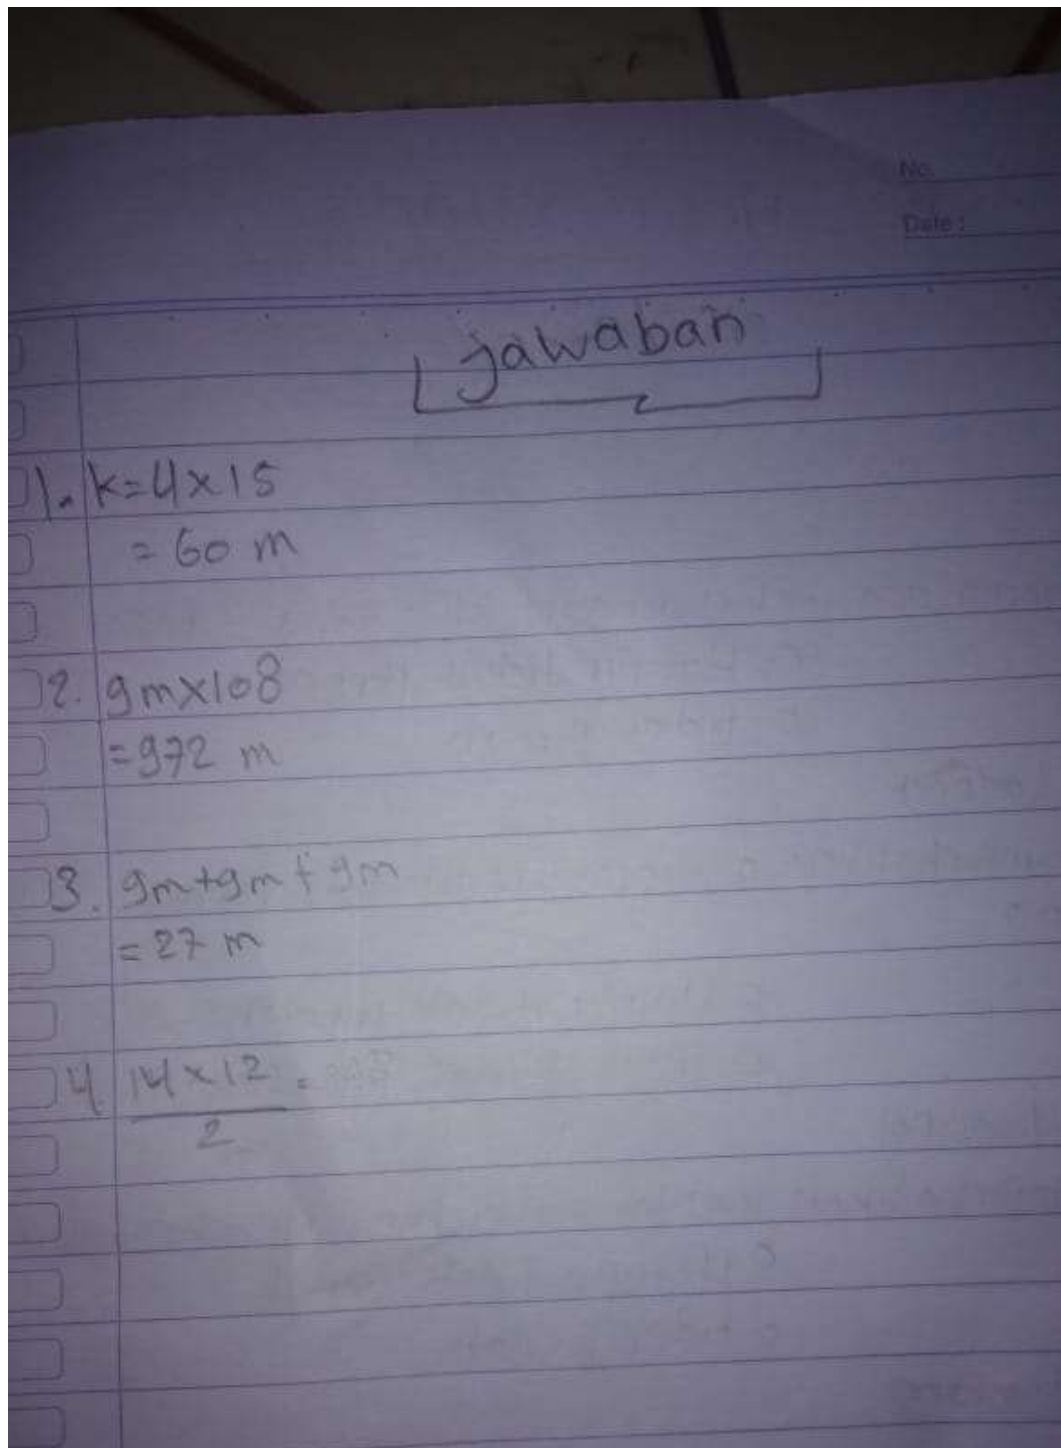 No.
Date :
jawaban
1. k=4x15
= 60 m
2. 9mx108
=972 m
3. 9m+9m+9m
= 27 m
4. 14x12 =
2